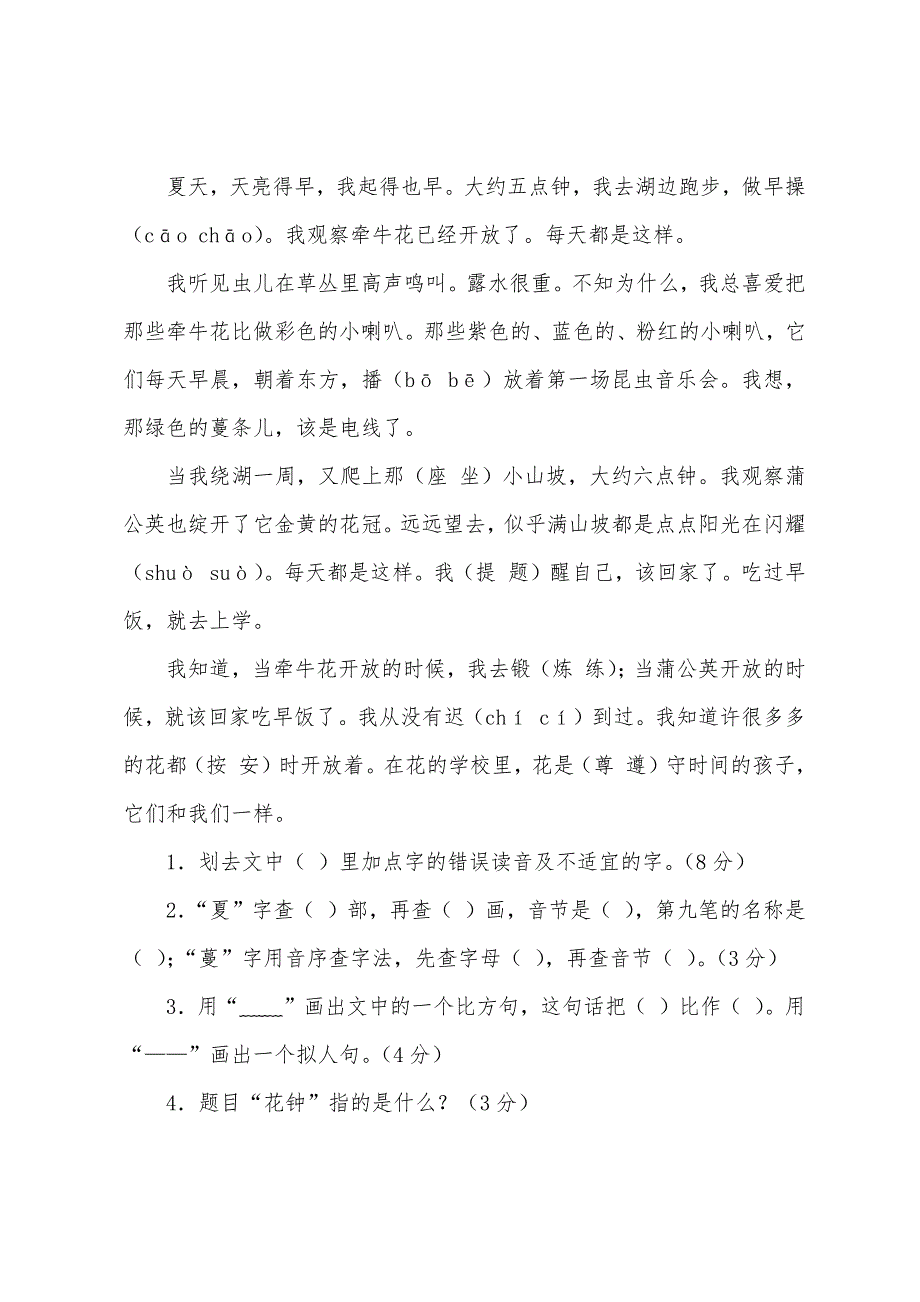 夏天，天亮得早，我起得也早。大约五点钟，我去湖边跑步，做早操
（cāo chāo）。我观察牵牛花已经开放了。每天都是这样。
我听见虫儿在草丛里高声鸣叫。露水很重。不知为什么，我总喜爱把
那些牵牛花比做彩色的小喇叭。那些紫色的、蓝色的、粉红的小喇叭，它
们每天早晨，朝着东方，播（bō bē）放着第一场昆虫音乐会。我想，
那绿色的蔓条儿，该是电线了。
当我绕湖一周，又爬上那（座 坐）小山坡，大约六点钟。我观察蒲
公英也绽开了它金黄的花冠。远远望去，似乎满山坡都是点点阳光在闪耀
（shuò suò）。每天都是这样。我（提 题）醒自己，该回家了。吃过早
饭，就去上学。
我知道，当牵牛花开放的时候，我去锻（炼 练）；当蒲公英开放的时
候，就该回家吃早饭了。我从没有迟（chí cí）到过。我知道许很多多
的花都（按 安）时开放着。在花的学校里，花是（尊 遵）守时间的孩子，
它们和我们一样。
1．划去文中（ ）里加点字的错误读音及不适宜的字。（8分）
2．“夏”字查（ ）部，再查（ ）画，音节是（ ），第九笔的名称是
（ ）；“蔓”字用音序查字法，先查字母（ ），再查音节（ ）。（3分）
3．用“﹏﹏”画出文中的一个比方句，这句话把（ ）比作（ ）。用
“——”画出一个拟人句。（4分）
4．题目“花钟”指的是什么？（3分）